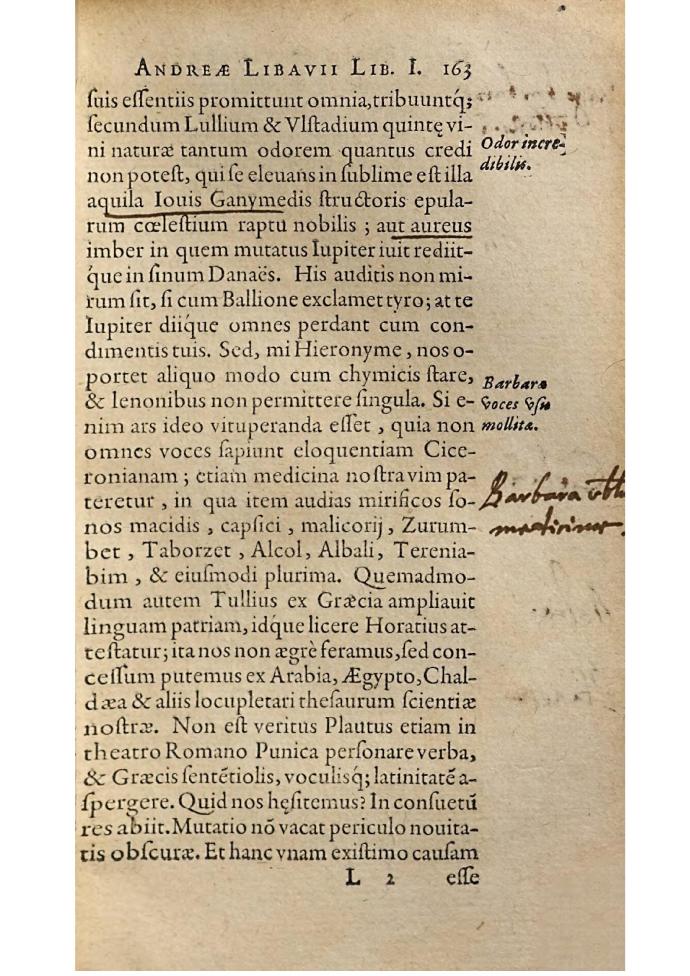 ANDREÆ LIBAVII LIB. I. 163
ſuis eſſentiis promittunt omnia,tribuuntq́;
ſecundum Lullium & Vlſtadium quintę vi-
ni naturæ tantum odorem quantus credi
non poteſt, qui ſe eleuans in ſublime eſt illa
aquila Iouis Ganymedis ſtructoris epula-
rum cœleſtium raptu nobilis ; aut aureus
imber in quem mutatus Iupiter iuit rediit-
q́ue in ſinum Danaës. His auditis non mi-
rum ſit, ſi cum Ballione exclamet tyro; at te
Iupiter diiq́ue omnes perdant cum con-
dimentis tuis. Sed, mi Hieronyme, nos o-
portet aliquo modo cum chymicis ſtare,
& lenonibus non permittere ſingula. Si e-
nim ars ideo vituperanda eſſet, quia non
omnes voces ſapiunt eloquentiam Cice-
ronianam ; etiam medicina noſtra vim pa-
teretur, in qua item audias mirificos ſo-
nos macidis, capſici, malicorij, Zurum-
bet, Taborzet, Alcol, Albali, Terenia-
bim, & eiuſmodi plurima. Quemadmo-
dum autem Tullius ex Græcia ampliauit
linguam patriam, idque licere Horatius at-
teſtatur; ita nos non ægrè feramus, ſed con-
ceſſum putemus ex Arabia, Ægypto, Chal-
dæa & aliis locupletari theſaurum ſcientiæ
noſtræ. Non eſt veritus Plautus etiam in
theatro Romano Punica perſonare verba,
& Græcis ſentētiolis, voculiſq́; latinitatē a-
ſpergere. Quid nos hęſitemus? In conſuetū
res abiit. Mutatio nō vacat periculo nouita-
tis obſcuræ. Et hanc vnam exiſtimo cauſam
L 2 eſſe
Odor incre-
dibilis.
Barbaræ
voces vſu
mollitæ.
Barbara